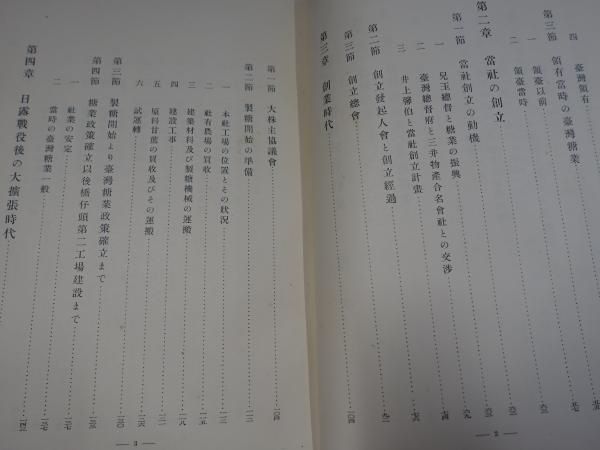 四 臺灣領有
第三節 領有當時の臺灣糖業
一 領臺以前
二 領臺當時
第二章 當社の創立
第一節 當社創立の動機
一 兒玉總督と糖業の振興
二 臺灣總督府と三井物產合名會社との交涉
三 井上馨伯と當社創立計畫
第二節 創立發起人會と創立經過
第三節 創立總會
第三章 創業時代
— 2 —
第一節 大株主協議會
第二節 製糖開始の準備
一 本社工場の位置とその狀況
二 社有農場の買收
三 建築材料及び製糖機械の運搬
四 建設工事
五 原料甘蔗の買收及びその運搬
六 試運轉
第三節 製糖開始より臺灣糖業政策確立まで
第四節 糖業政策確立以後橋仔頭第二工場建設まで
一 社業の安定
二 當時の臺灣糖業一般
第四章 日露戰役後の大擴張時代
— 3 —